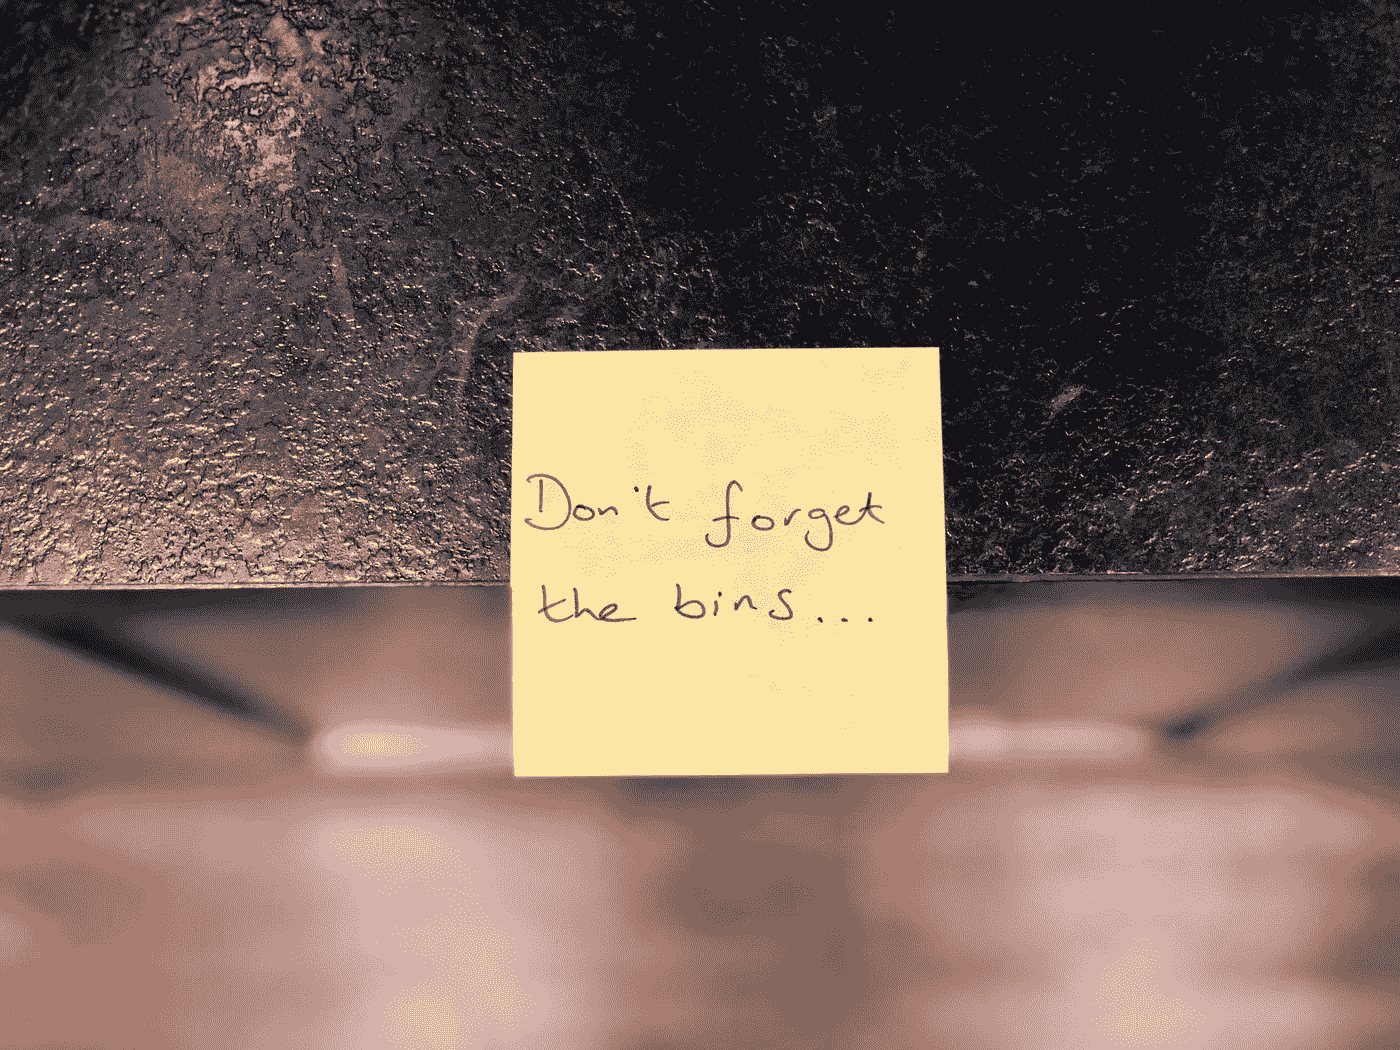 Don't forget
the bins...